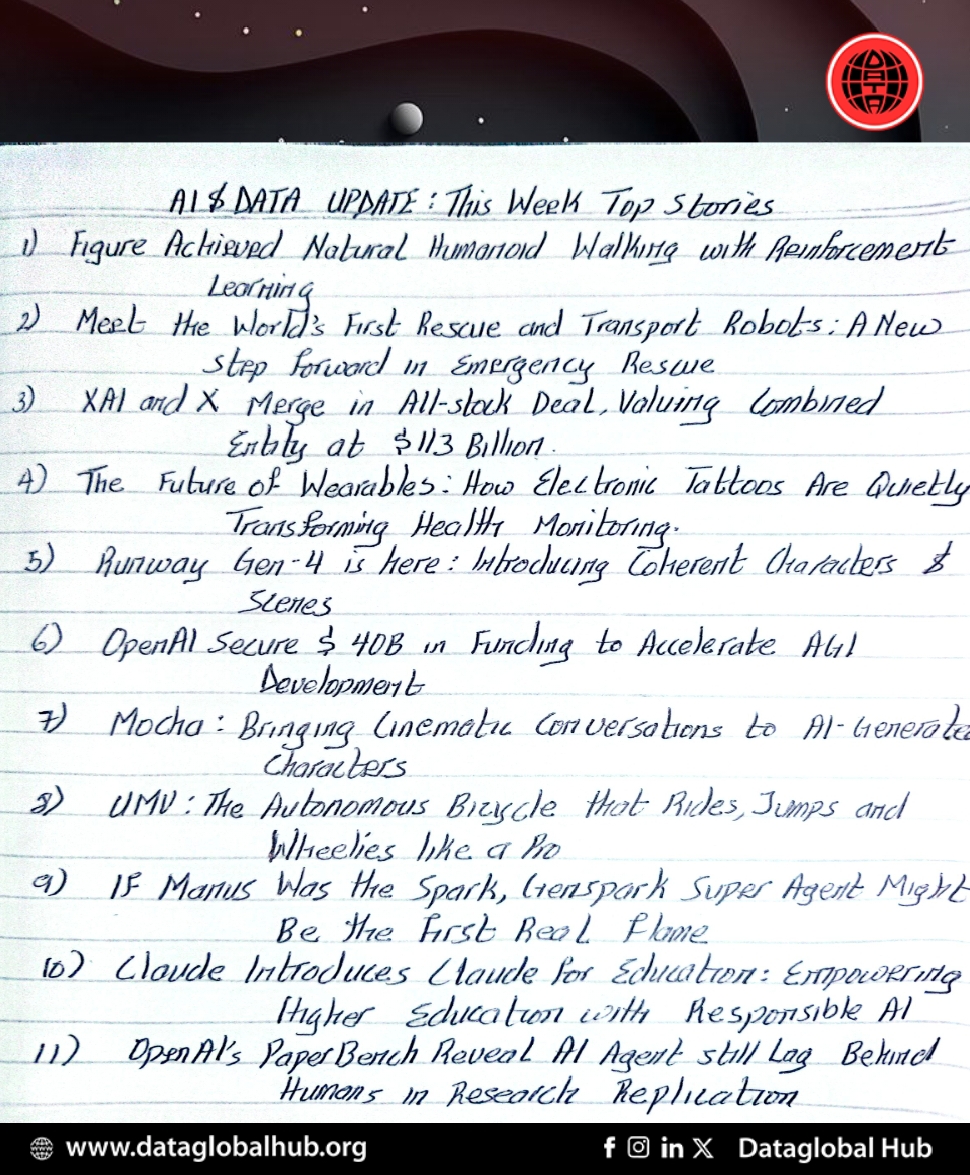 DATA
AI & DATA UPDATE : This Week Top Stories
1) Figure Achieved Natural Humanoid Walking with Reinforcement
Learning
2) Meet the World's First Rescue and Transport Robots : A New
Step Forward in Emergency Rescue
3) XAI and X Merge in All-stock Deal, Valuing Combined
Entity at $113 Billion.
4) The Future of Wearables : How Electronic Tattoos Are Quietly
Transforming Health Monitoring.
5) Runway Gen-4 is here : Introducing Coherent Characters &
Scenes
6) OpenAI Secure $ 40B in Funding to Accelerate AGI
Development
7) Mocha : Bringing Cinematic Conversations to AI-Generated
Characters
8) UMV : The Autonomous Bicycle that Rides, Jumps and
Wheelies like a Pro
9) If Manus Was the Spark, Genspark Super Agent Might
Be the First Real Flame
10) Claude Introduces Claude for Education : Empowering
Higher Education with Responsible AI
11) OpenAI's PaperBench Reveal AI Agent still Lag Behind
Humans in Research Replication
www.dataglobalhub.org
f in X Dataglobal Hub